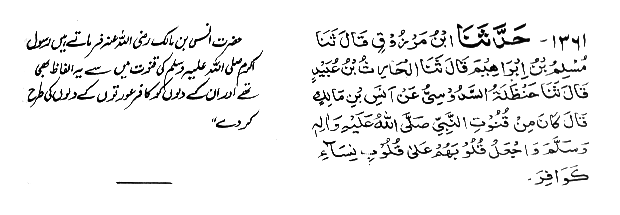 ۱۳۶۱- حَدَّثَنَا ابْنُ مَرْزُوْقٍ قَالَ ثَنَا
مُسْلِمُ بْنُ اِبْرَاهِيْمَ قَالَ ثَنَا الْحَارِثُ بْنُ عُبَيْدٍ
قَالَ ثَنَا حَنْظَلَةُ السَّدُوْسِيُّ عَنْ اَنَسِ بْنِ مَالِكٍ
قَالَ كَانَ مِنْ قُنُوْتِ النَّبِيِّ صَلَّى اللهُ عَلَيْهِ وَاٰلِهٖ
وَسَلَّمَ وَاجْعَلْ قُلُوْبَهُمْ عَلٰى قُلُوْبِ نِسَآءٍ
كَوَافِرَ-
حضرت انس بن مالک رضی اللہ عنہ فرماتے ہیں رسول
اکرم صلی اللہ علیہ وسلم کی قنوت میں سے یہ الفاظ بھی
تھے اور ان کے دلوں کو کافر عورتوں کے دلوں کی طرح
کر دے"